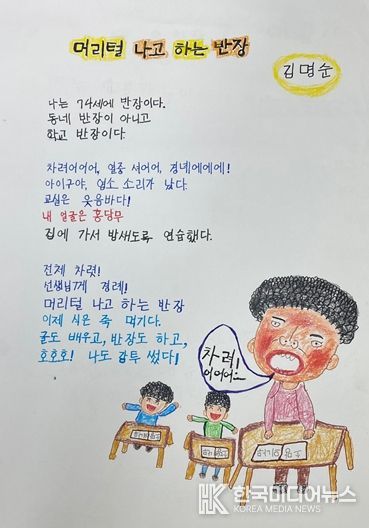 머리털 나고 하는 반장
김명순
나는 74세에 반장이다.
동네 반장이 아니고
학교 반장이다.
차려어어어, 열중 셔어어, 경녜에에에!
아이구야, 염소 소리가 났다.
교실은 웃음바다!
내 얼굴은 홍당무
집에 가서 밤새도록 연습했다.
전체 차렷!
선생님께 경례!
머리털 나고 하는 반장
이제 식은 죽 먹기다.
글도 배우고, 반장도 하고,
호호호! 나도 감투 썼다!
차려!
어어어스
한국미디어뉴스
KOREA MEDIA NEWS